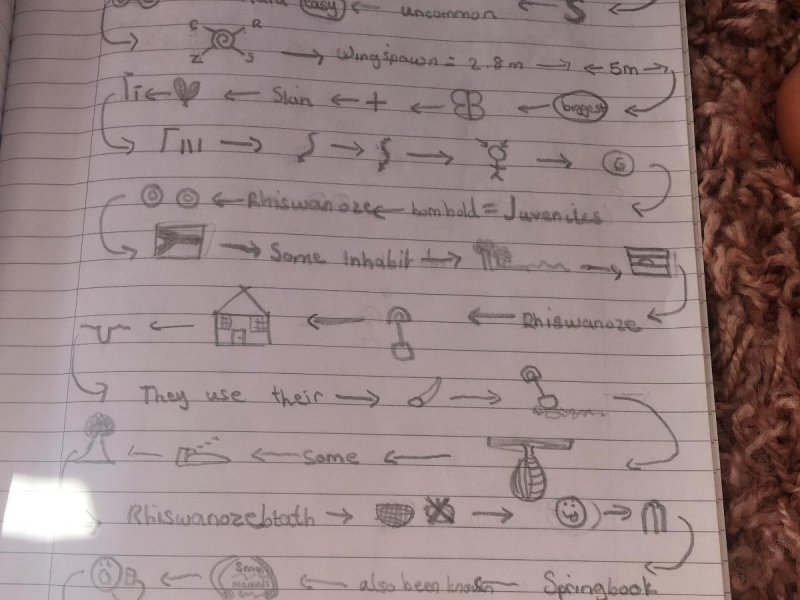 easy uncommon
C R Z S Wingspawn = 2.8m 5m
Skin + biggest
G
Rhiswanoze bomhold = Juveniles
Some inhabit
Rhiswanoze
They use their
Some
Rhiswanozebtath
Some also been known Springbook